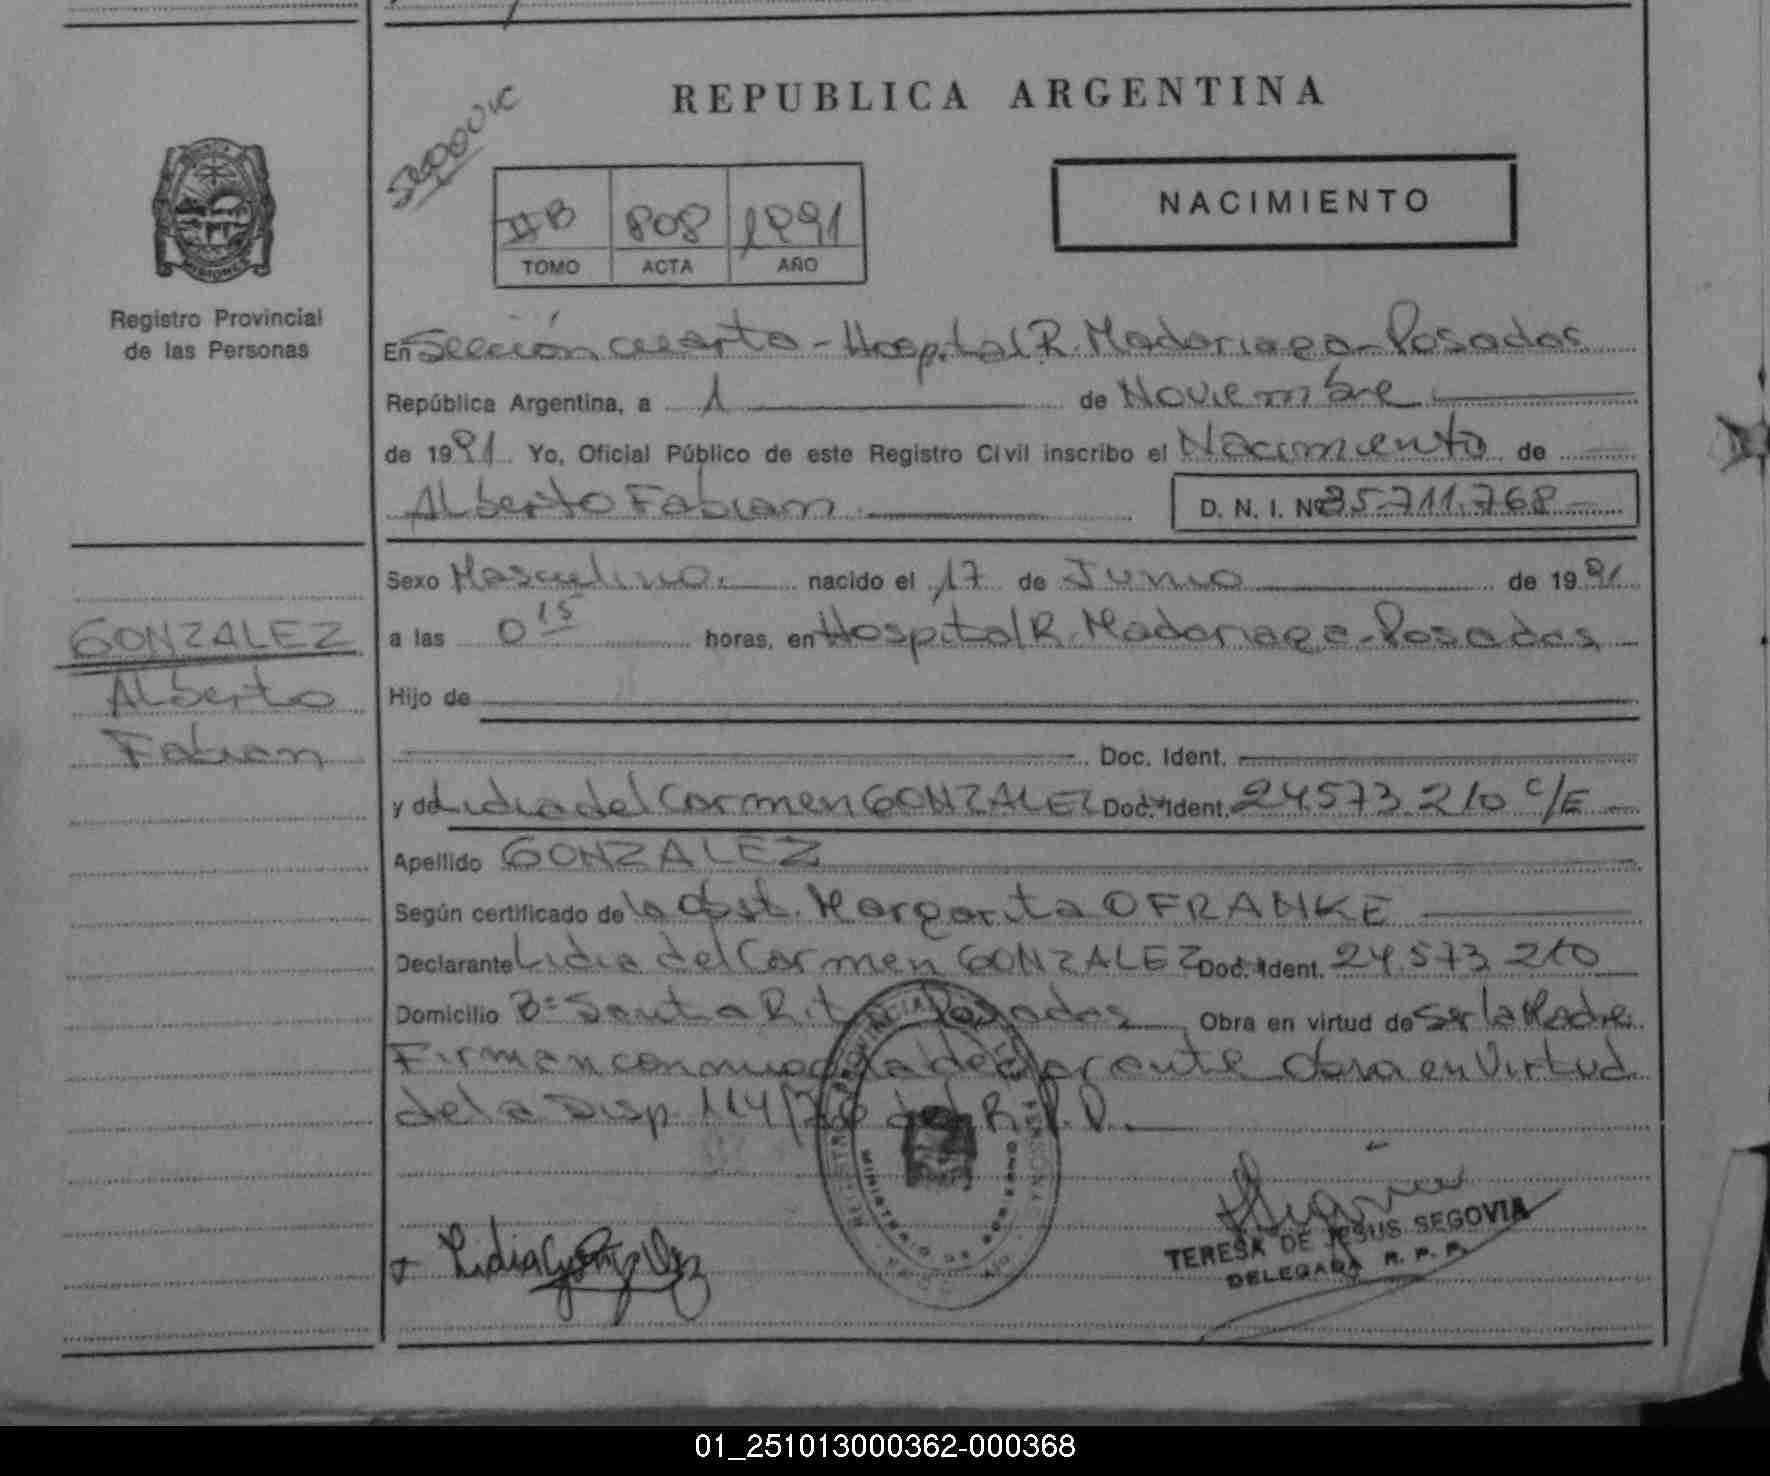 REPUBLICA ARGENTINA
NACIMIENTO
IIB 808 1991
TOMO ACTA AÑO
Registro Provincial
de las Personas
En Sección cuarta - Hospital R. Madariaga - Posadas
República Argentina, a 1 de Noviembre
de 1991 Yo, Oficial Público de este Registro Civil inscribo el Nacimiento de
Alberto Fabian D. N. I. Nº 35.711.768
Sexo Masculino. nacido el 17 de Junio de 1991
a las 0 15 horas, en Hospital R. Madariaga - Posadas
GONZALEZ
Alberto
Fabian
Hijo de
Doc. Ident.
y de Lidia del Carmen GONZALEZ Doc. Ident. 24.573.210 C/E
Apellido GONZALEZ
Según certificado de la Obst. Margarita O FRANKE
Declarante Lidia del Carmen GONZALEZ Doc. Ident. 24.573 210
Domicilio Bº Santa Rita Posadas Obra en virtud de Ser la Madre
Firman conmigo la declarante Obra en Virtud
de la Disp. 114/ del R.P.P.
MINISTERIO DE GOBIERNO
Lidia Gonzalez
TERESA DE JESUS SEGOVIA
DELEGADA R. P. P.
01_251013000362-000368